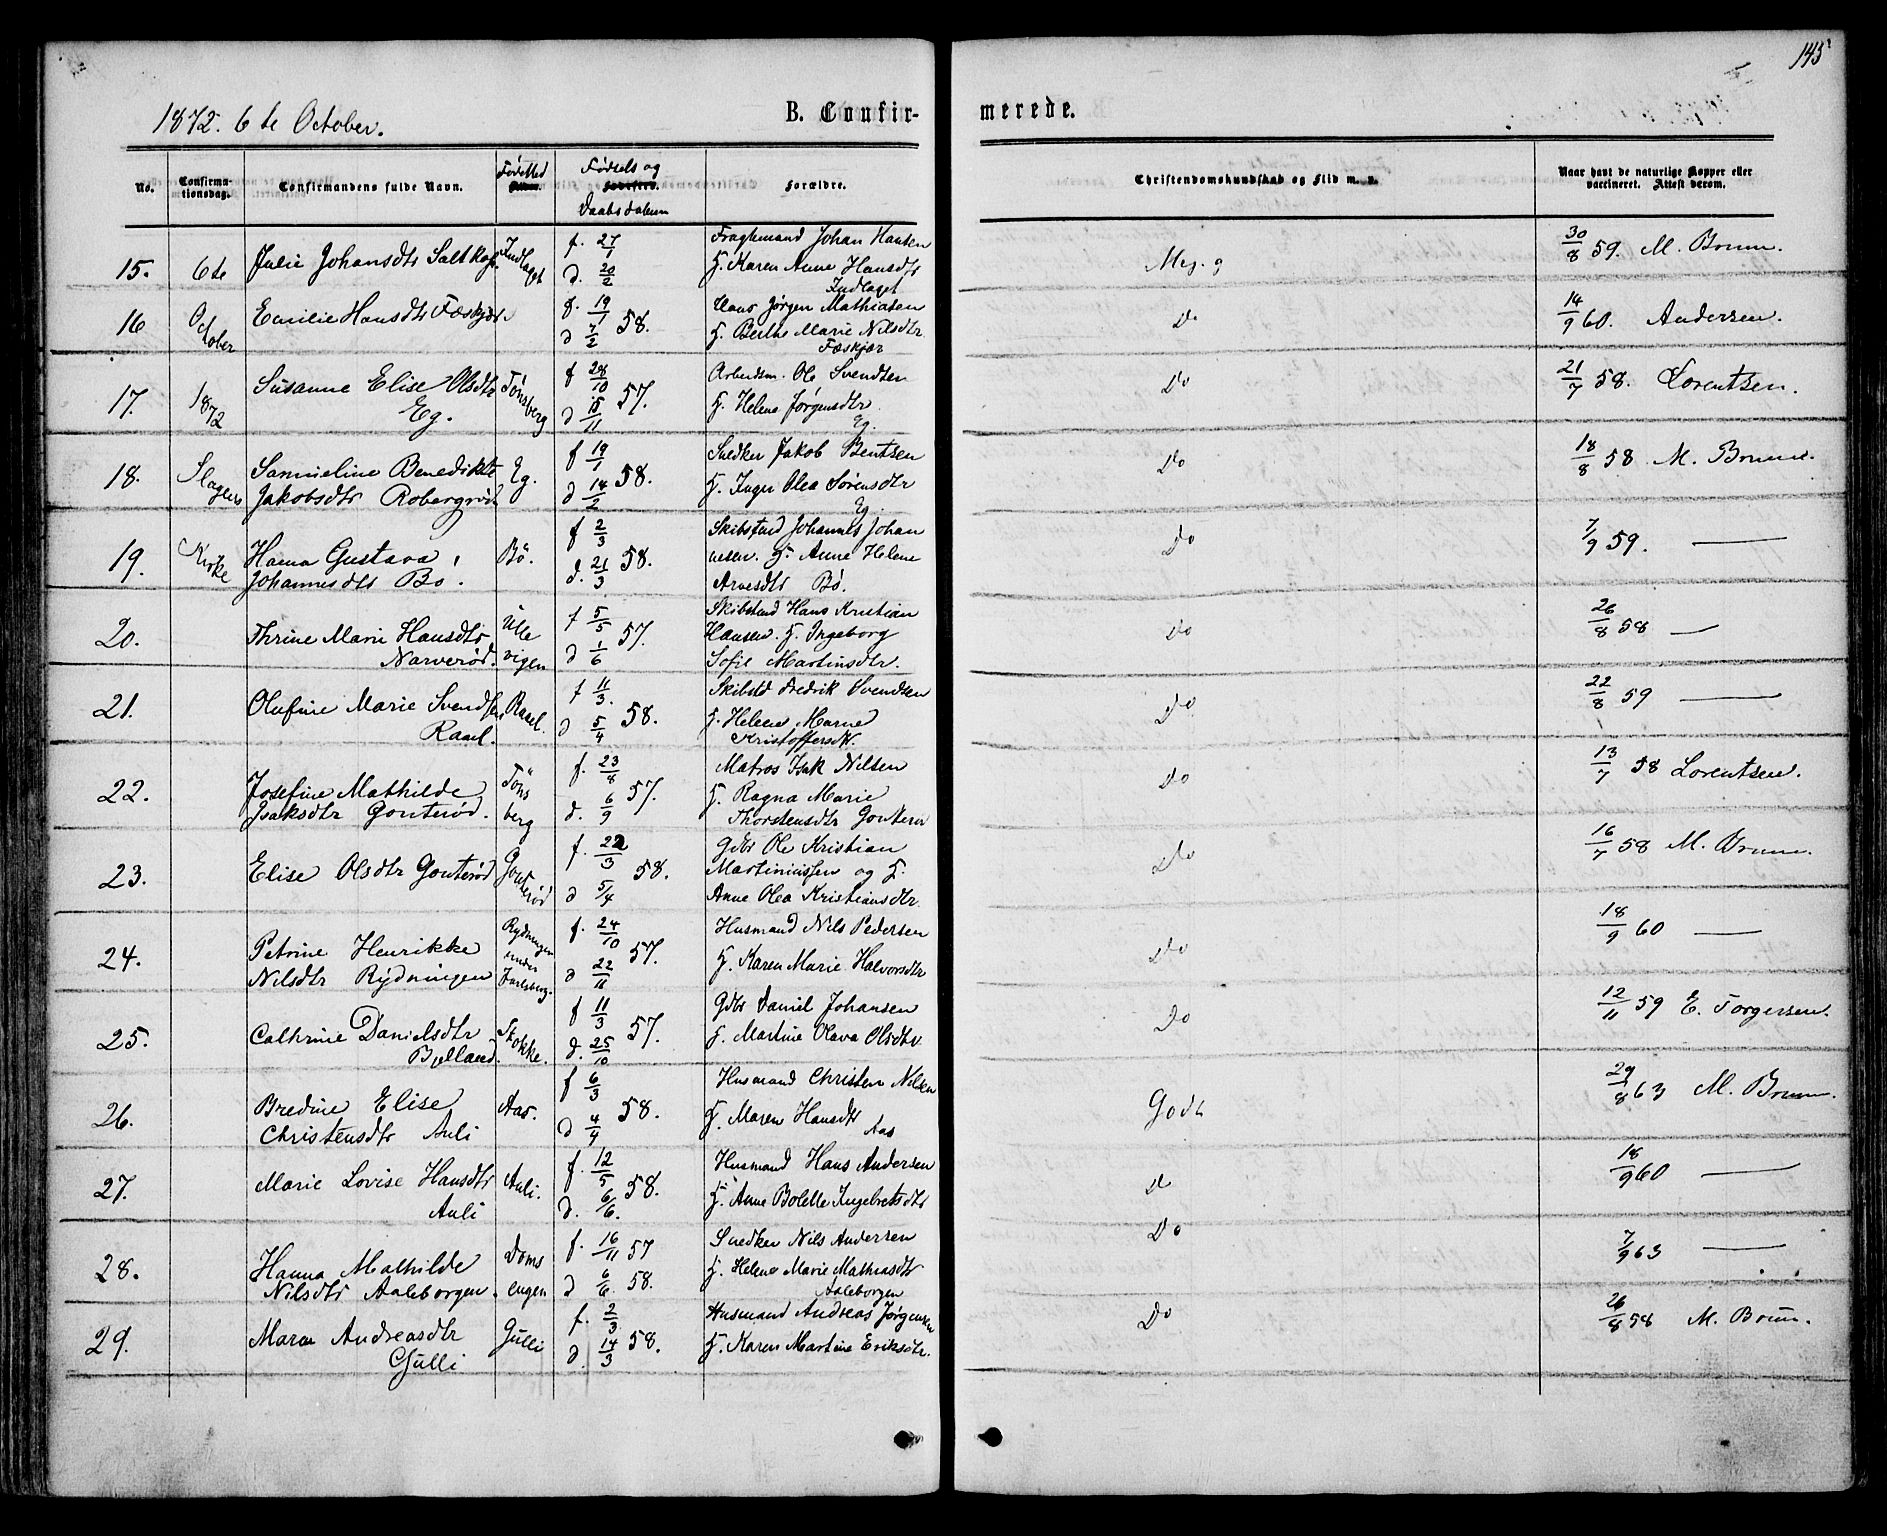 145
1872. 6te October.
B. Confir-
merede.
No.
Confirma-
tionsdag.
Confirmandens fulde Navn.
Fødested
Fødsels og
Daabsdatum
Forældre.
Christendomskundskab og Flid m. v.
Naar havt de naturlige Kopper eller
vaccineret. Attest derom.
15. 6te Julie Johansdtr Indlaget f. 27/1 d. 20/2 Fragtemand Johan Hansen
H. Karen Anne Hansdtr
Indlaget
Meg. g 30/8 59. M. Bruun.
16 October Emilie Hansdtr Fæskjær. f. 19/1 d 7/2 58. Hans Jørgen Mathiasen
H. Berthe Marie Nilsdtr.
Fæskjær
Do 14/9 60. Andersen.
17. 1872 Susanne Elise Olsdtr
Eg.
Tønsberg f 28/10 d 15/11 57. Arbeidsm. Ole Svendsen
H. Helene Jørgensdtr.
Eg.
Do 21/7 58. Lorentsen.
18. Slagens Samueline Benedikte
Jakobsdtr Robergrød
Eg. f 19/1 d 14/2 58. Snedker Jakob Bentsen
H. Inger Olea Sørensdtr
Eg.
Do 18/8 58 M. Bruun.
19. Kirke Hanna Gustava
Johannesdtr Bø.
Bø. f 2/3 d. 21/3 58. Skibstmd Johannes Johan
nesen. H. Anne Helene
Arvesdtr Bø.
Do 7/9 59. —
20. Thrine Marie Hansdtr
Narverød.
Ulle
vigen
f 5/5 d 1/6 57. Skibstmd Hans Kristian
Hansen. H. Ingeborg
Sofie Martinsdtr.
Do 26/8 58 —
21. Olufine Marie Svendsen
Rael.
Rael. f 11/3. d 5/4 58. Skibstd Fredrik Svendsen
H. Helene Marie
Kristoffersdtr.
Do 22/8 59 —
22. Josefine Mathilde
Isaksdtr Gonterød.
Töns
berg
f. 23/8 d. 6/9 57. Matros Isak Nilsen
H. Ragna Marie
Thorstensdtr
Do 13/7 58 Lorentsen.
23. Elise Olsdtr Gonterød Gonterød f. 22/3 d 5/4 58. Gdbr Ole Kristian
Martiniussen og H.
Anne Olea Kristiansdtr.
Do 16/7 58 M. Bruun.
24. Petrine Henrikke
Nilsdtr Rydningen
Rydningen
under
Jarlsberg.
f. 24/10 d 22/11 57. Husmand Nils Pedersen
H. Karen Marie Halvorsdtr
Do 18/9 60 —
25. Cathrine Danielsdtr
Bjelland.
Stokke. f 11/3 d. 25/10 57. Gdbr Daniel Johansen
H. Martine Olava Olsdtr.
Do 12/11 59 E. Torgersen.
26. Bredine Elise
Christensdtr Auli
Aas. f 6/3 d 4/4 58. Husmand Christen Nilsen
H. Maren Hansdtr
Aas
Godt 29/8 63 M. Bruun.
27. Marie Lovise Hansdtr
Auli
Auli. f. 12/5 d. 6/6 58. Husmand Hans Andersen
H. Anne Bolette Ingebretsdtr
Do 18/9 60 —
28. Hanna Mathilde
Nilsdtr Aaleborgen.
Doms
engen
f. 16/11 57 d 6/6 58. Snedker Nils Andersen
H. Helene Marie Mathiasdtr
Aaleborgen
Do 7/9 63 —
29. Maren Andreasdtr
Gulli
Gulli f. 2/3 d. 14/3 58. Husmand Andreas Jørgensen
H. Karen Martine Eriksdtr.
Do 26/8 58 M. Bruun.